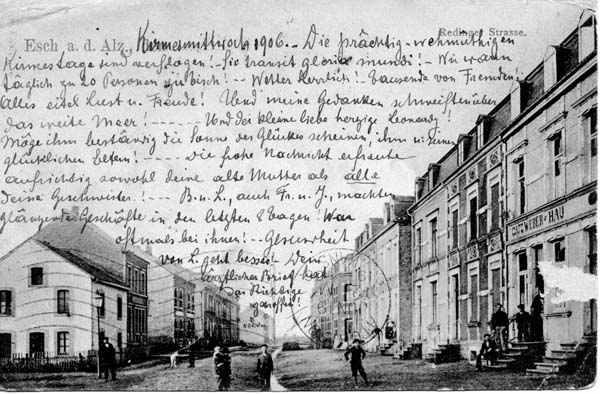 Redinger Strasse.
Esch a. d. Alz., Kirmesmittwoch 1906. - Die prächtig-wehmüthigen
Kirmestage sind verflogen! - Sic transit gloria mundi! - Wir waren
täglich zu 20 Personen zu Tisch! -- Wetter herrlich! Tausende von Fremden.
Alles eitel Lust u. Freude! Und meine Gedanken schweiften über
das weite Meer! ---- Und der kleine liebe herzige Leonardy!
Möge ihm beständig die Sonne des Glückes scheinen, ihm u. seinen
glücklichen Eltern! ---- Die frohe Nachricht erfreute
aufrichtig sowohl deine alte Mutter als alle
deine Geschwister! --- B. u. L., auch Fr. u. J., machten
glänzende Geschäfte in den letzten 2 Tagen! War
oftmals bei ihnen! -- Gesundheit
von L. geht besser. Dein
ärztlicher Brief hat
das Richtige
getroffen!
CAFÉ WEBER-HAU